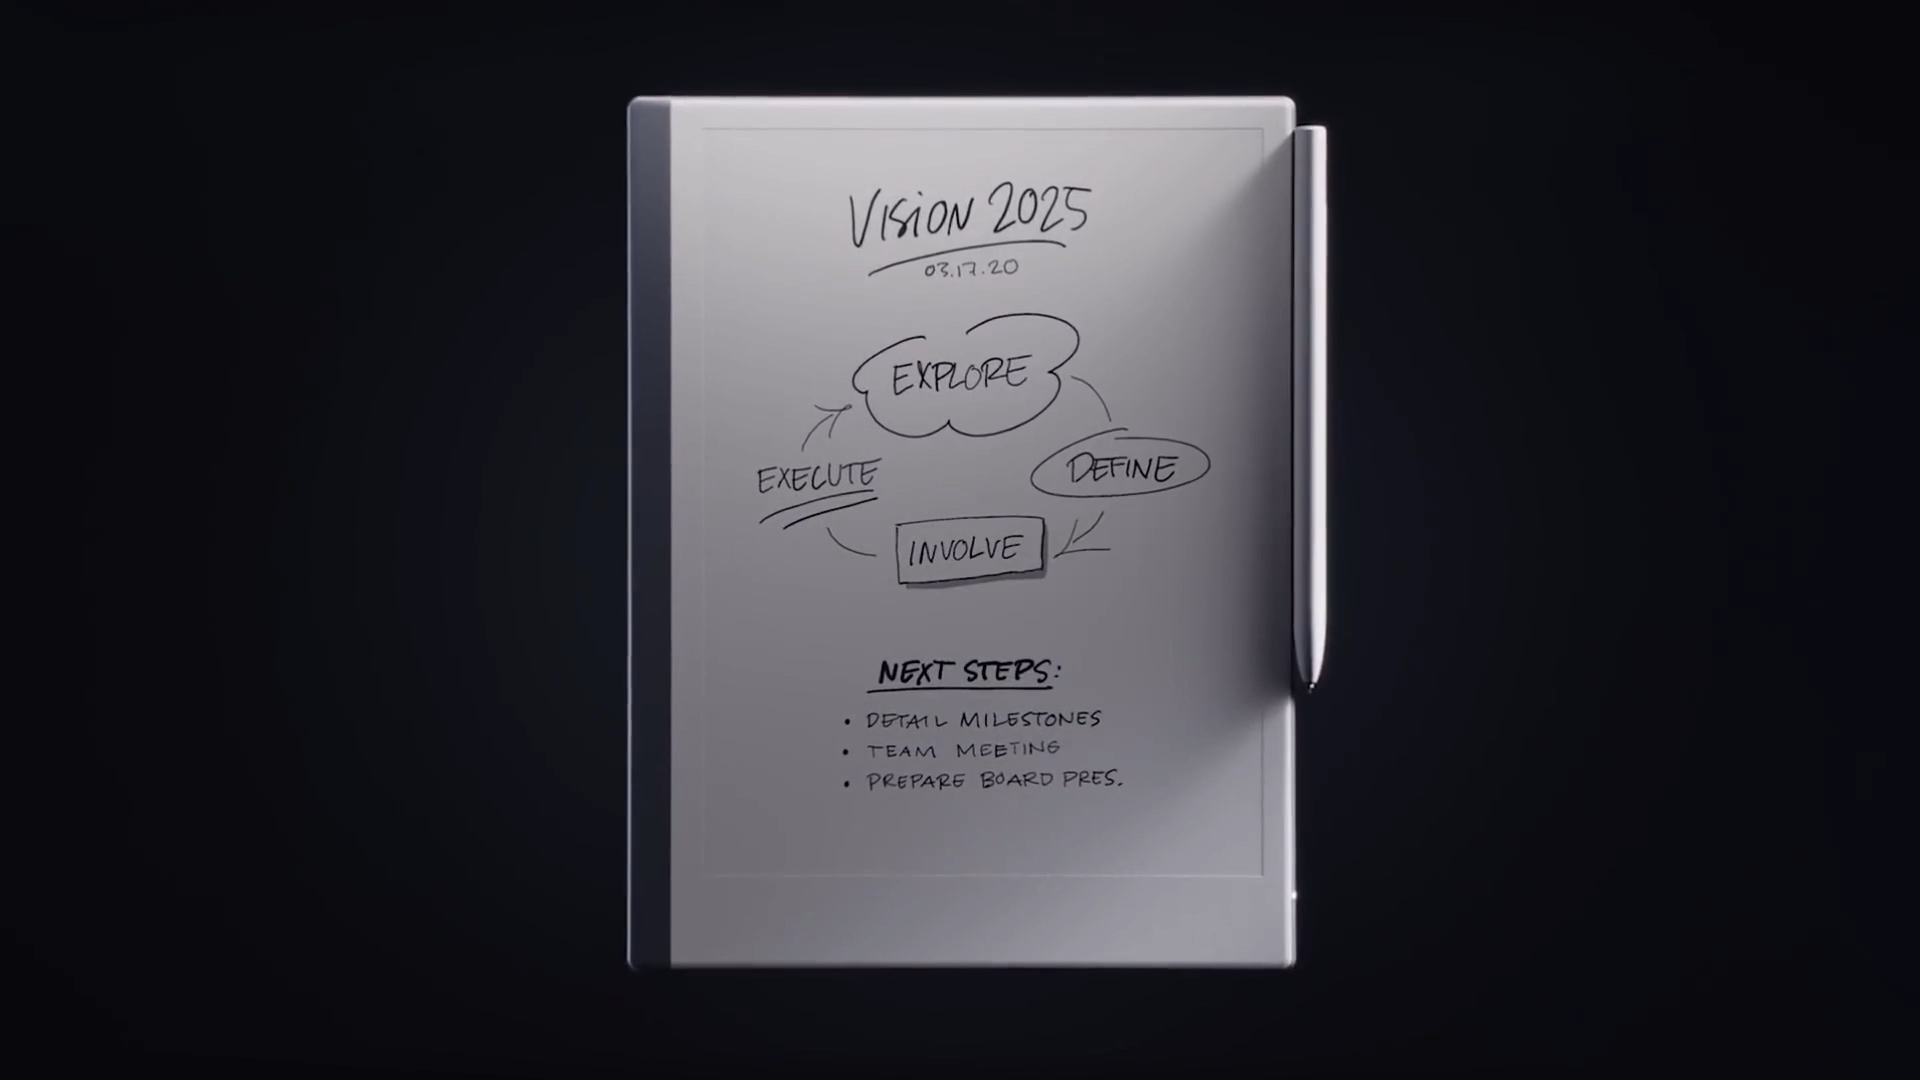 Vision 2025
03.17.20
EXPLORE
DEFINE
EXECUTE
INVOLVE
NEXT STEPS:
• DETAIL MILESTONES
• TEAM MEETING
• PREPARE BOARD PRES.